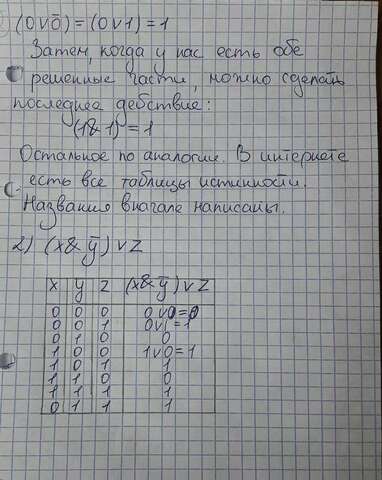 (0∨0̄) = (0∨1) = 1
Затем, когда у нас есть обе
решенные части, можно сделать
последнее действие:
(1&1) = 1
Остальное по аналогии. В интернете
есть все таблицы истинности.
Названия вначале написаны.
2) (x&ȳ)∨Z
x y z (x&ȳ)∨Z
0 0 0 0∨0=0
0 0 1 0∨1=1
0 1 0 0
1 0 0 1∨0=1
1 0 1 1
1 1 0 0
1 1 1 1
0 1 1 1